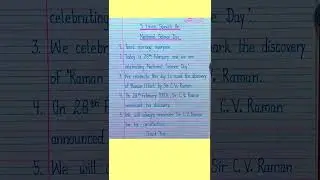 celebrating
3. We celeb
of "Raman
4. On 28th
announced
5. We will
5 Lines Speech On
National Science Day
1. Good morning everyone.
2. Today is 28th February and we are
celebrating 'National Science Day'.
3. We celebrate this day to mark the discovery
of "Raman Effect" by Sir C.V. Raman.
4. On 28th February 1928, Sir C.V. Raman
announced his discovery.
5. We will always remember Sir C.V. Raman
for his contribution.
Thank You
ce Day'.
k the discovery
. Raman.
C.V. Raman
Sir C.V.